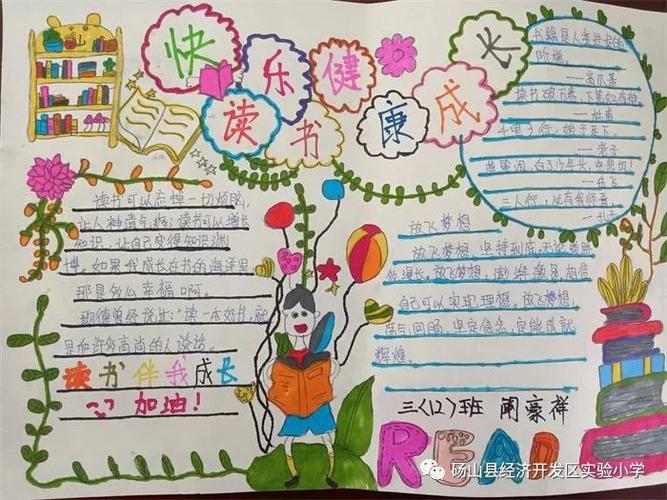 快乐健康成长
读书
书籍是人类进步的
阶梯。
——高尔基
读书破万卷，下笔如有神。
——杜甫
千里之行，始于足下。
——老子
莫等闲，白了少年头，空悲切！
——岳飞
三人行，必有我师焉。
——孔子
读书可以忘掉一切烦恼，
让人神清气爽；读书可以增长
知识，让自己变得知识渊
博。如果我成长在书的海洋里
那是多么幸福啊。
歌德曾经说过：“读一本好书，就
是和许多高尚的人谈话。
读书伴我成长
加油！
放飞梦想
放飞梦想，坚持到底，
放飞梦想，澎湃
自己可以实现理想。放飞梦想
坚定信念，定能成就
辉煌。
三〈12〉班 阚豪祥
READ
砀山县经济开发区实验小学